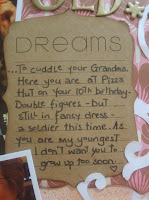 OLD
DREAMS
...To cuddle your Grandma.
Here you are at Pizza
Hut on your 10th birthday-
Double figures - but ...
still in fancy dress -
a soldier this time. As
you are my youngest
I don't want you to
grow up too soon.